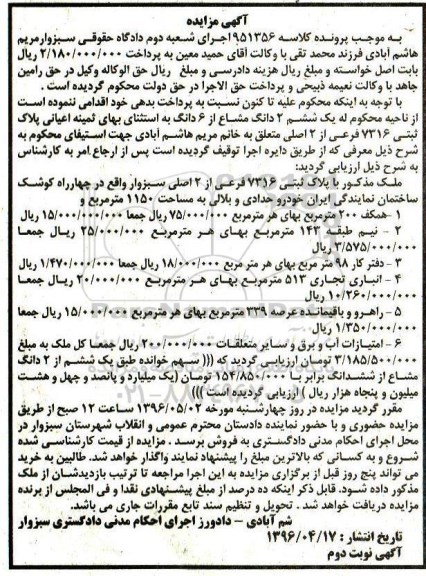 آگهی مزایده
به موجب پرونده کلاسه ۹۵۱۳۵۶ اجرای شعبه دوم دادگاه حقوقی سبزوار مریم
هاشم آبادی فرزند محمد تقی با وکالت آقای حمید معین به پرداخت ۲/۱۸۰/۰۰۰/۰۰۰ ریال
بابت اصل خواسته و مبلغ ریال هزینه دادرسی و مبلغ ریال حق الوکاله وکیل در حق رامین
جاهد با وکالت نعیمه ذبیحی و پرداخت حق الاجرا در حق دولت محکوم گردیده است .
با توجه به اینکه محکوم علیه تا کنون نسبت به پرداخت بدهی خود اقدامی ننموده است
از ناحیه محکوم له یک ششم ۲ دانگ مشاع از ۶ دانگ به استثنای بهای ثمینه اعیانی پلاک
ثبتی ۷۳۱۶ فرعی از ۲ اصلی متعلق به خانم مریم هاشم آبادی جهت استیفای محکوم به
شرح ذیل معرفی که از طریق دایره اجرا توقیف گردیده است پس از ارجاع امر به کارشناس
به شرح ذیل ارزیابی گردید:
ملک مذکور با پلاک ثبتی ۷۳۱۶ فرعی از ۲ اصلی سبزوار واقع در چهارراه کوشک
ساختمان نمایندگی ایران خودرو حدادی و بلالی به مساحت ۱۱۵۰ مترمربع و
۱ -همکف ۲۰۰ مترمربع بهای هر مترمربع ۷۵/۰۰۰/۰۰۰ ریال جمعا ۱۵/۰۰۰/۰۰۰/۰۰۰ ریال
۲ - نیم طبقه ۱۴۳ مترمربع بهای هر مترمربع ۲۵/۰۰۰/۰۰۰ ریال جمعا
۳/۵۷۵/۰۰۰/۰۰۰ ریال
۳ - دفتر کار ۹۸ متر مربع بهای هر متر مربع ۱۸/۰۰۰/۰۰۰ ریال جمعا ۱/۴۷۰/۰۰۰/۰۰۰ ریال
۴ - انباری تجاری ۵۱۳ مترمربع بهای هر مترمربع ۲۰/۰۰۰/۰۰۰ ریال جمعا
۱۰/۲۶۰/۰۰۰/۰۰۰ ریال
۵ - راهرو و باقیمانده عرصه ۳۳۹ مترمربع بهای هر مترمربع ۱۵/۰۰۰/۰۰۰ ریال جمعا
۱/۳۵۰/۰۰۰/۰۰۰ ریال
۶ - امتیازات آب و برق و سایر متعلقات ۲۰۰/۰۰۰/۰۰۰ ریال جمعا کل ملک به مبلغ
۳/۱۸۵/۵۰۰/۰۰۰ تومان ارزیابی گردید که ((( سهم خوانده طبق یک ششم از ۲ دانگ
مشاع از ششدانگ برابر با ۱۵۴/۸۵۰/۰۰۰ تومان (یک میلیارد و پانصد و چهل و هشت
میلیون و پنجاه هزار ریال ) ارزیابی گردیده است )))
مقرر گردید مزایده در روز چهارشنبه مورخه ۱۳۹۶/۰۵/۰۲ ساعت ۱۲ صبح از طریق
مزایده حضوری و با حضور نماینده دادستان محترم عمومی و انقلاب شهرستان سبزوار در
محل اجرای احکام مدنی دادگستری به فروش برسد . مزایده از قیمت کارشناسی شده
شروع و به کسانی که بالاترین مبلغ را پیشنهاد نمایند واگذار خواهد شد. طالبین به خرید
می توانند پنج روز قبل از برگزاری مزایده به این اجرا مراجعه تا ترتیب بازدیدشان از ملک
مذکور داده شود. قابل ذکر اینکه ده درصد از مبلغ پیشنهادی نقدا و فی المجلس از برنده
مزایده دریافت خواهد شد . تحویل و تنظیم سند تابع مقررات جاری می باشد.
شم آبادی - دادورز اجرای احکام مدنی دادگستری سبزوار
تاریخ انتشار : ۱۳۹۶/۰۴/۱۷
آگهی نوبت دوم